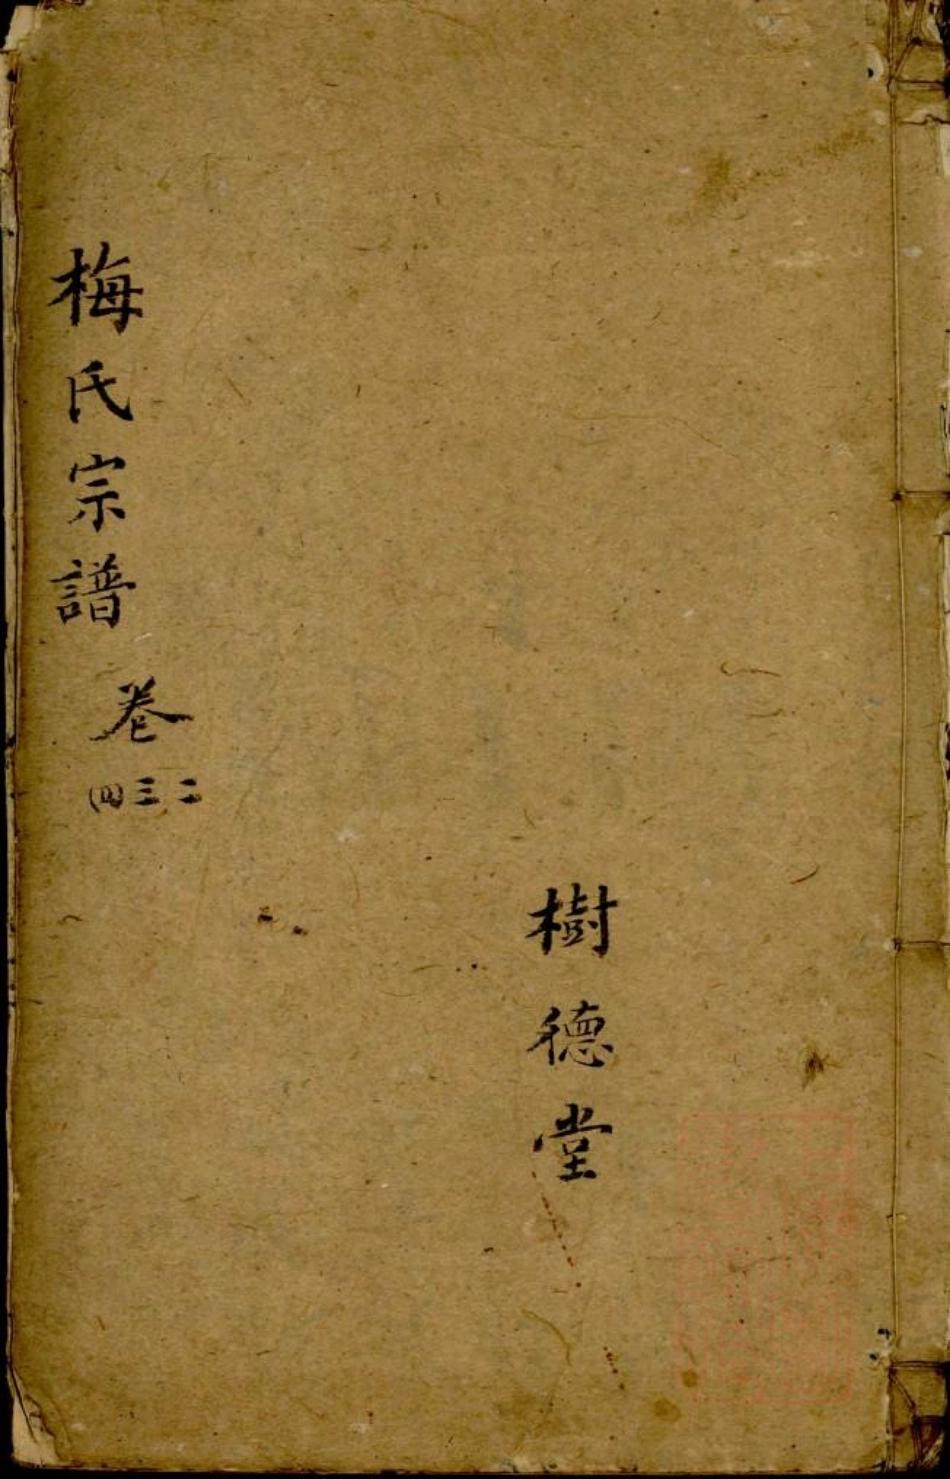 樹德堂
梅氏宗譜
卷
二三四